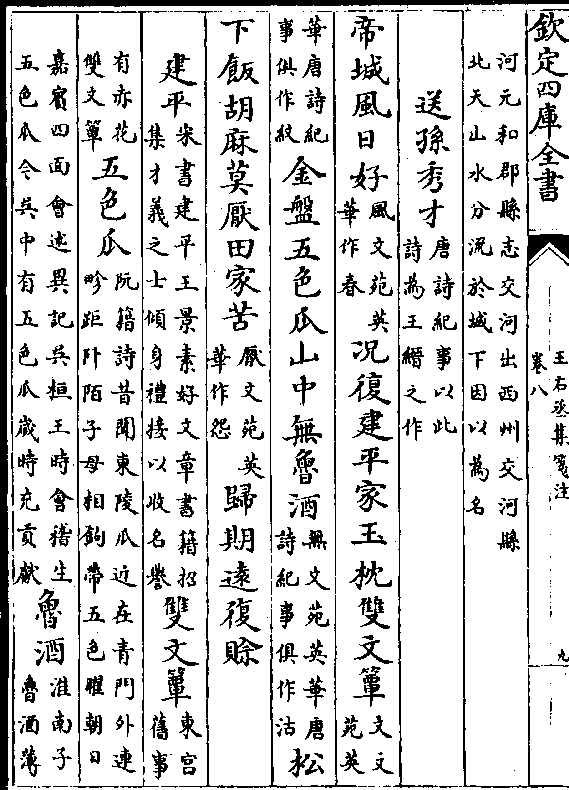 欽定四庫全書
王右丞集箋注
卷八
九
河元和郡縣志交河出西州交河縣
北天山水分流於城下因以為名
送孫秀才唐詩紀事以此
詩為王縉之作
帝城風日好風文苑英
華作春況復建平家玉枕雙文簟文文
苑英
華唐詩紀
事俱作紋金盤五色瓜山中無魯酒無文苑英華唐
詩紀事俱作沽松
下飯胡麻莫厭田家苦厭文苑英
華作怨歸期遠復賒
建平宋書建平王景素好文章書籍招
集才義之士傾身禮接以收名譽雙文簟東宮
舊事
有赤花
雙文簟五色瓜阮籍詩昔聞東陵瓜近在青門外連
畛距阡陌子母相鉤帶五色曜朝日
嘉賓四面會述異記吳桓王時會稽生
五色瓜今吳中有五色瓜歲時充貢獻魯酒淮南子
魯酒薄